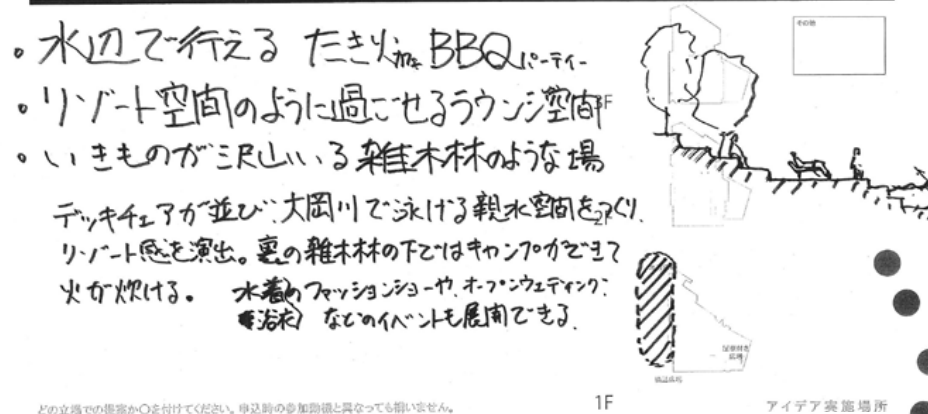 ・水辺で行える たき火カフェ BBQパーティー
・リゾート空間のように過ごせるラウンジ空間
・いきものが沢山いる雑木林のような場
デッキチェアが並び、大岡川で泳げる親水空間をつくり、
リゾート感を演出。裏の雑木林の下ではキャンプができて
火が炊ける。 水着のファッションショーや、オープンウェディング、
(浴衣) などのイベントも展開できる。
その他
3F
2F
1F
どの立場での提案か○を付けてください。申込時の参加動機と異なっても構いません。
アイデア実施場所